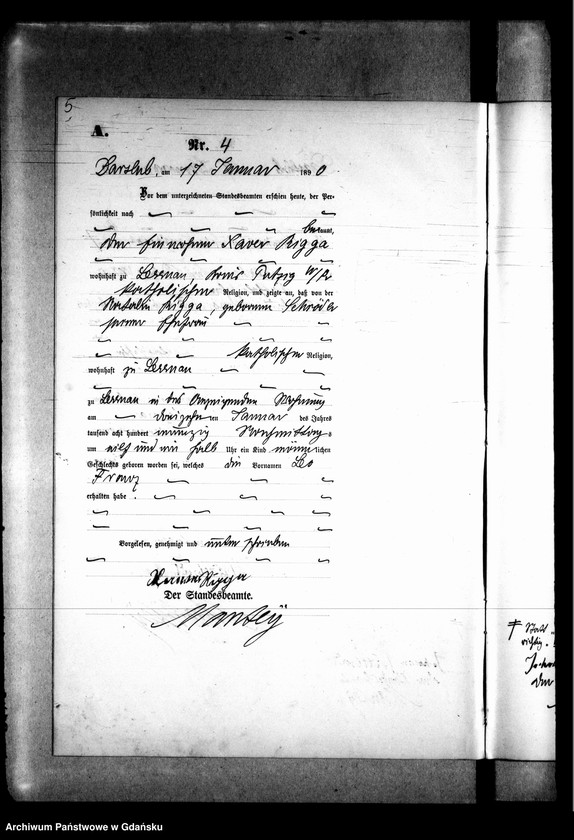 5
A.
Nr. 4
Darslub, am 17 Januar 1890
Vor dem unterzeichneten Standesbeamten erschien heute, der Per-
sönlichkeit nach
bekannt,
der Einwohner Xaver Rigga
wohnhaft zu Lessnau, Kreis Putzig W/Pr
katholischer Religion, und zeigte an, daß von der
Natalie Rigga, geborenen Schröder
seiner Ehefrau
katholischen Religion,
wohnhaft zu Lessnau
zu Lessnau in des Anzeigenden Wohnung
am dreizehnten Januar des Jahres
tausend acht hundert neunzig Nachmittags
um elf und ein halb Uhr ein Kind männlichen
Geschlechts geboren worden sei, welches die Vornamen Leo
Franz
erhalten habe.
Vorgelesen, genehmigt und unterschrieben
Xaver Rigga
Der Standesbeamte.
Mantey
richtig.
Archiwum Państwowe w Gdańsku